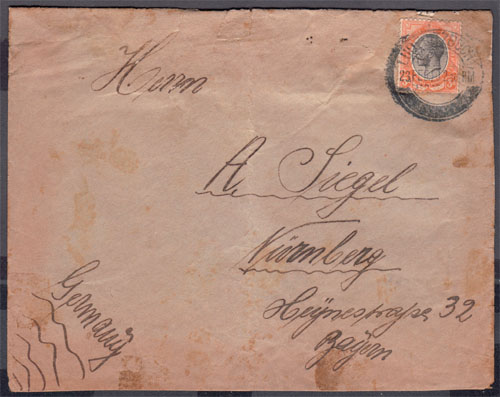 Herrn
A. Siegel
Nürnberg
Heynestraße 32
Bayern
Germany